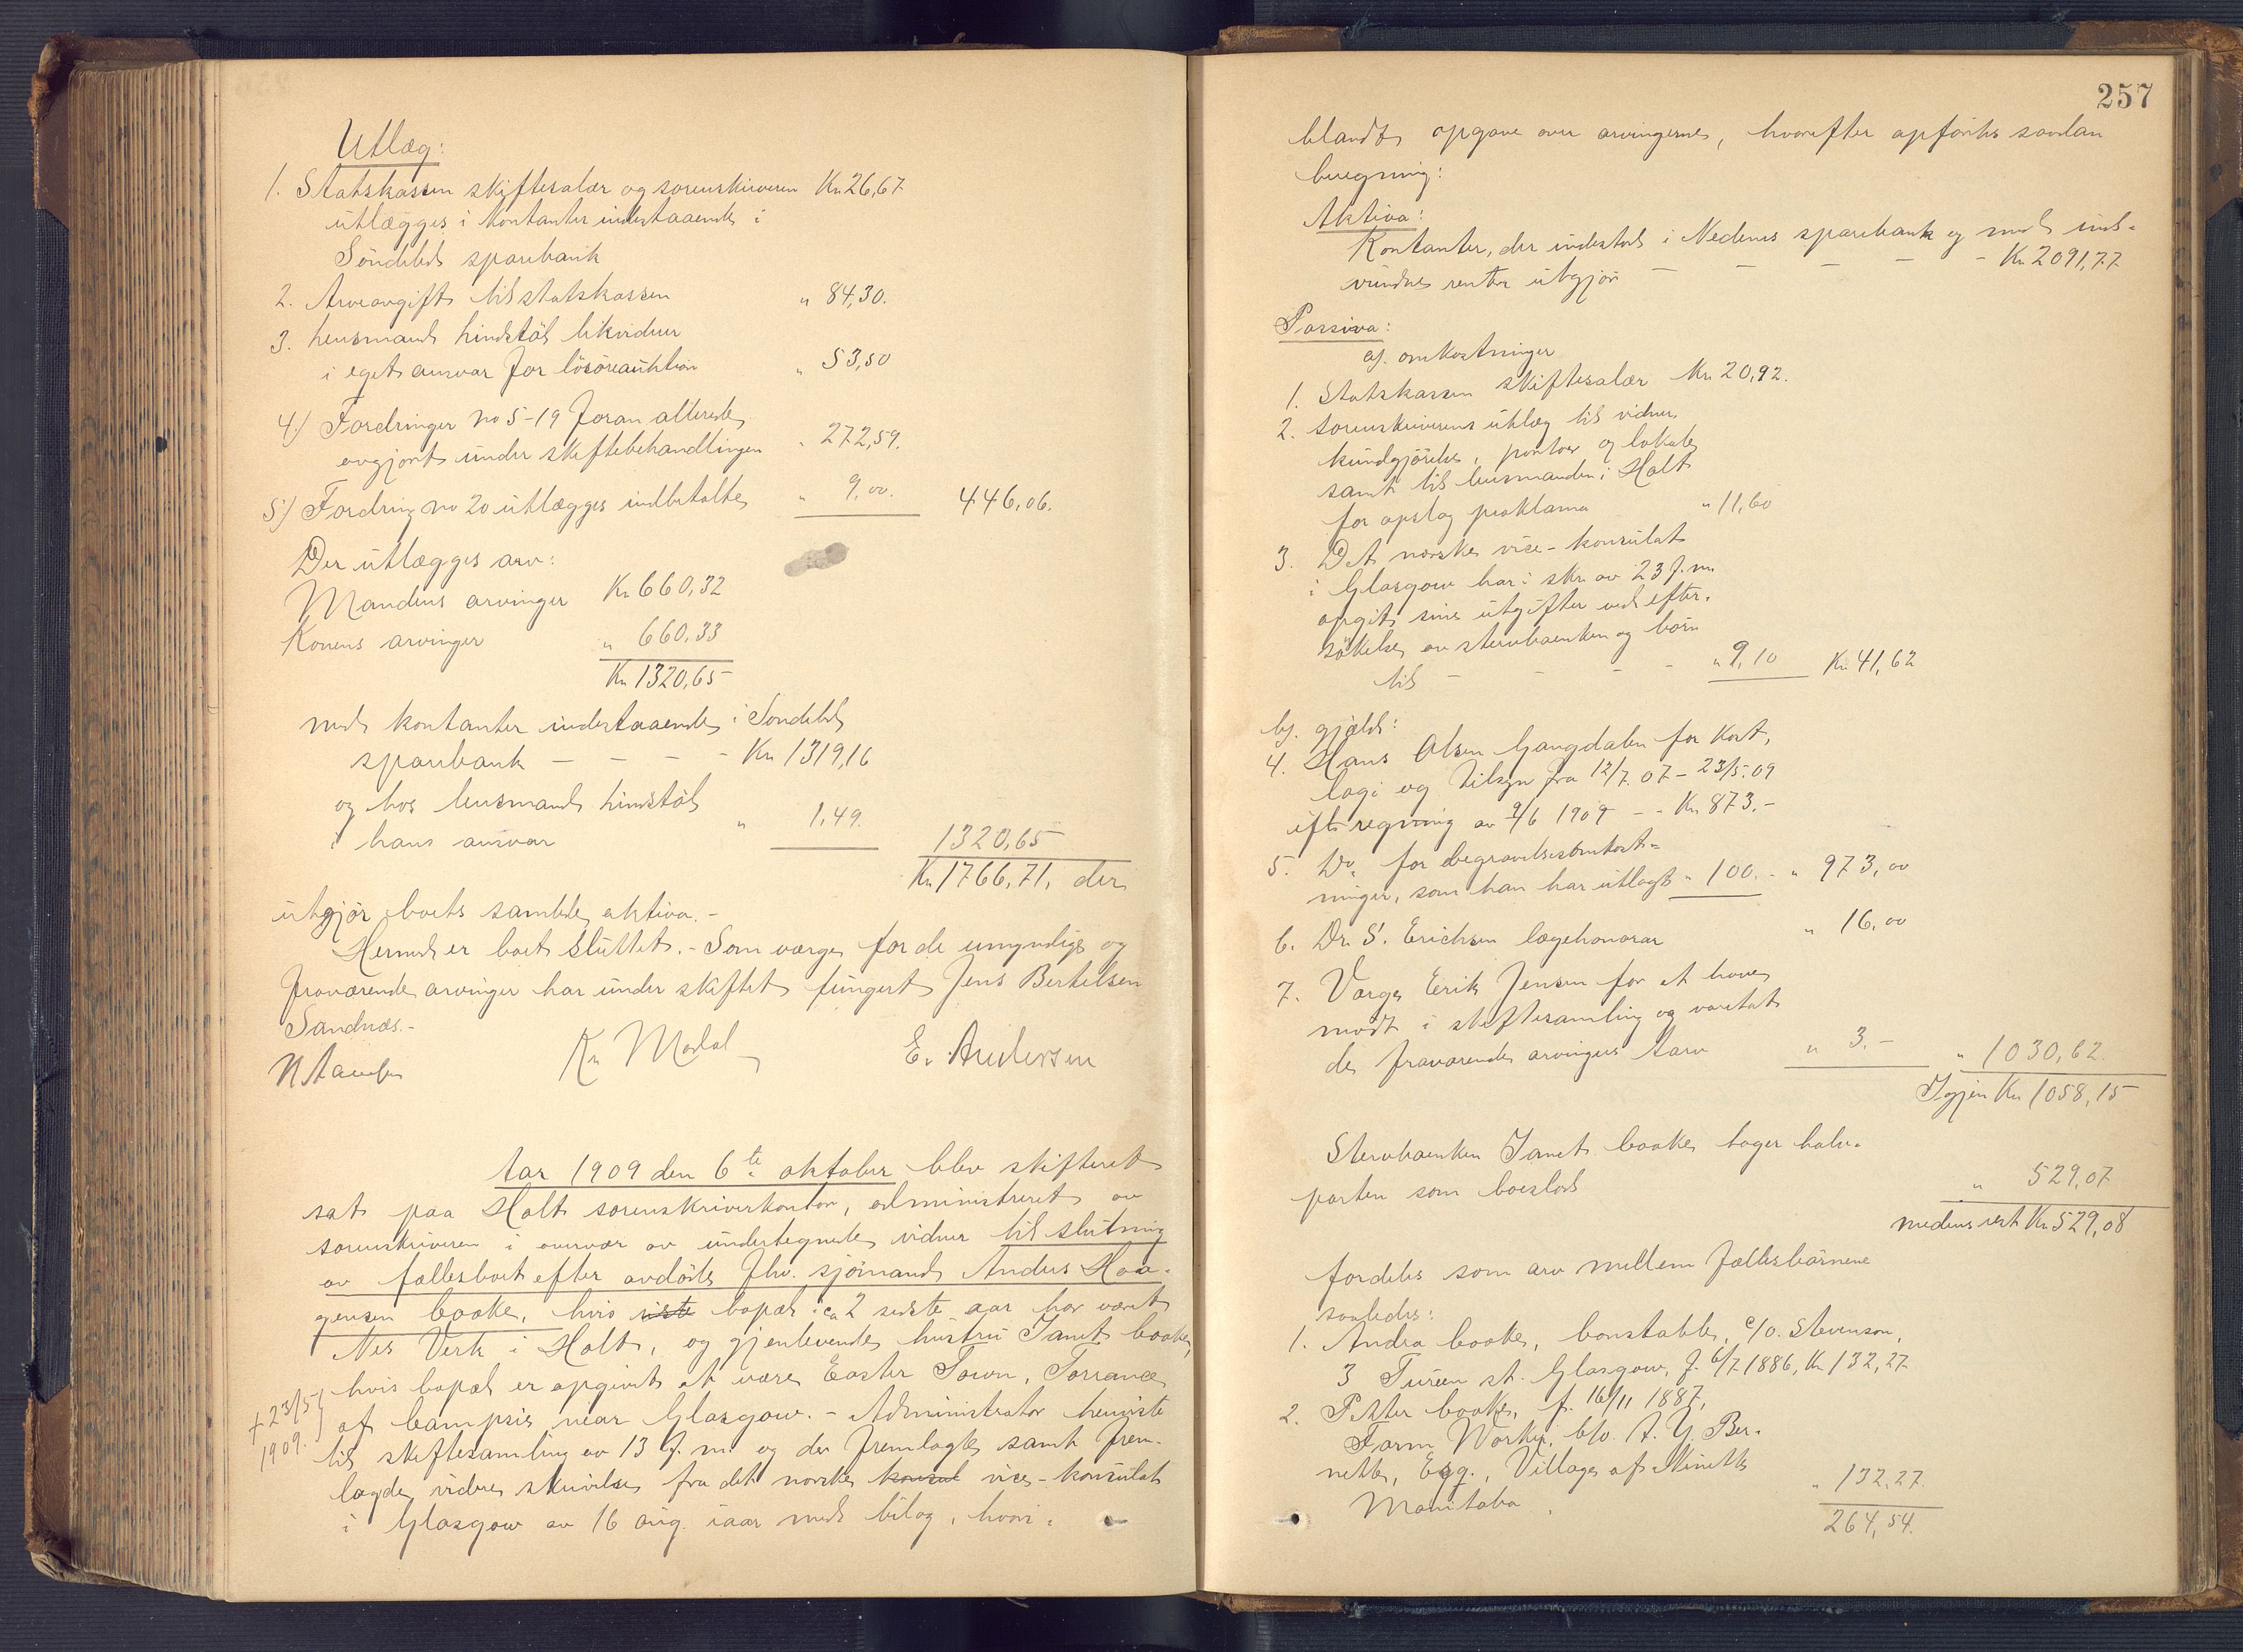 Utlæg:
1. Statskassen skiftesalær og sorenskriveren Kr 26,67
utlægges i kontanter indestaaende i
Söndeled sparebank
2. Arveavgift til statskassen " 84,30.
3. Lensmand Lindstöl likviderer
i eget ansvar for lösöreauktion " 53,50
4.) Fordringer no 5-19 foran allerede
avgjort under skiftebehandlingen " 272,59.
5.) Fordring no 20 utlægges indbetalte " 9,00. 446,06.
Der utlægges arv:
Mandens arvinger Kr 660,32
Konens arvinger " 660,33
Kr 1320,65
med kontanter indestaaende i Söndeled
sparebank - - - - Kr 1319,16
og hos lensmand Lindstöl
i hans ansvar " 1,49. 1320,65
Kr 1766,71, der
utgjör boets samlede aktiva.-
Hermed er boet sluttet.- Som værge for de umyndige og
fraværende arvinger har under skiftet fungert Jens Bertelsen
Sandnæs.-
Kr Modal E. Andersen
Aar 1909 den 6te oktober blev skifteret
sat paa Holt sorenskriverkontor, administreret av
sorenskriveren i overvær av undertegnede vidner til slutning
av fællesboet efter avdöde fhv. sjömand Anders Haa-
gensen Cooke, hvis siste bopæl i ca 2 sidste aar har været
Nes Verk i Holt, og gjenlevende hustru Janet Cooke,
hvis bopæl er opgivet at være Easter Town, Torrance
† 23/5
1909.
of Campsie near Glasgow.- Administrator henviste
til skiftesamling av 13 f. m. og der fremlagte samt frem-
lagde videre skrivelse fra det norske konsul vice-konsulat
i Glasgow av 16 aug. iaar med bilag, hvori-
257
blandt opgave over arvingerne, hvorefter opförtes saadan
beregning:
Aktiva:
Kontanter, der indestod i Nedenes sparebank og med ind-
vundne renter utgjör - - - - - Kr 2091,77
Passiva:
a). omkostninger
1. Statskassen skiftesalær Kr 20,92.
2. sorenskriverens utlæg til vidner,
kundgjörelse, portoer og lokale
samt til lensmanden i Holt
for opslag proklama " 11,60
3. Det norske vice-konsulat
i Glasgow har i skr. av 23 f. m.
opgit sine utgifter ved efter-
sökelse av stervboenken og börn
til - - - " 9,10 Kr 41,62
b). gjæld:
4. Hans Olsen Gangdalen for kost,
logi og tilsyn fra 12/7. 07 - 23/5. 09
efter regning av 9/6 1909 - - Kr 873.-
5. Do. for begravelsesomkost-
ninger, som han har utlagt " 100.- " 973,00
6. Dr. S. Erichsen lægehonorar " 16,00
7. Værge Erik Jensen for at have
mödt i skiftesamling og varetat
de fraværende arvingers tarv " 3.- " 1030,62.
Igjen Kr 1058,15
Stervboenken Janet Cooke tager halv-
parten som boeslod " 529,07
medens rest Kr 529,08
fordeles som arv mellem fællesbörnene
saaledes:
1. Andra Cooke, Constable, c/o. Stevenson,
3 Tureen st. Glasgow, f. 6/7 1886, Kr 132,27
2. Petter Cooke, f. 16/11 1887,
Farm Worker, c/o. A. Y. Ber-
nette, Esq., Village of
Manitoba. " 132,27.
264,54.